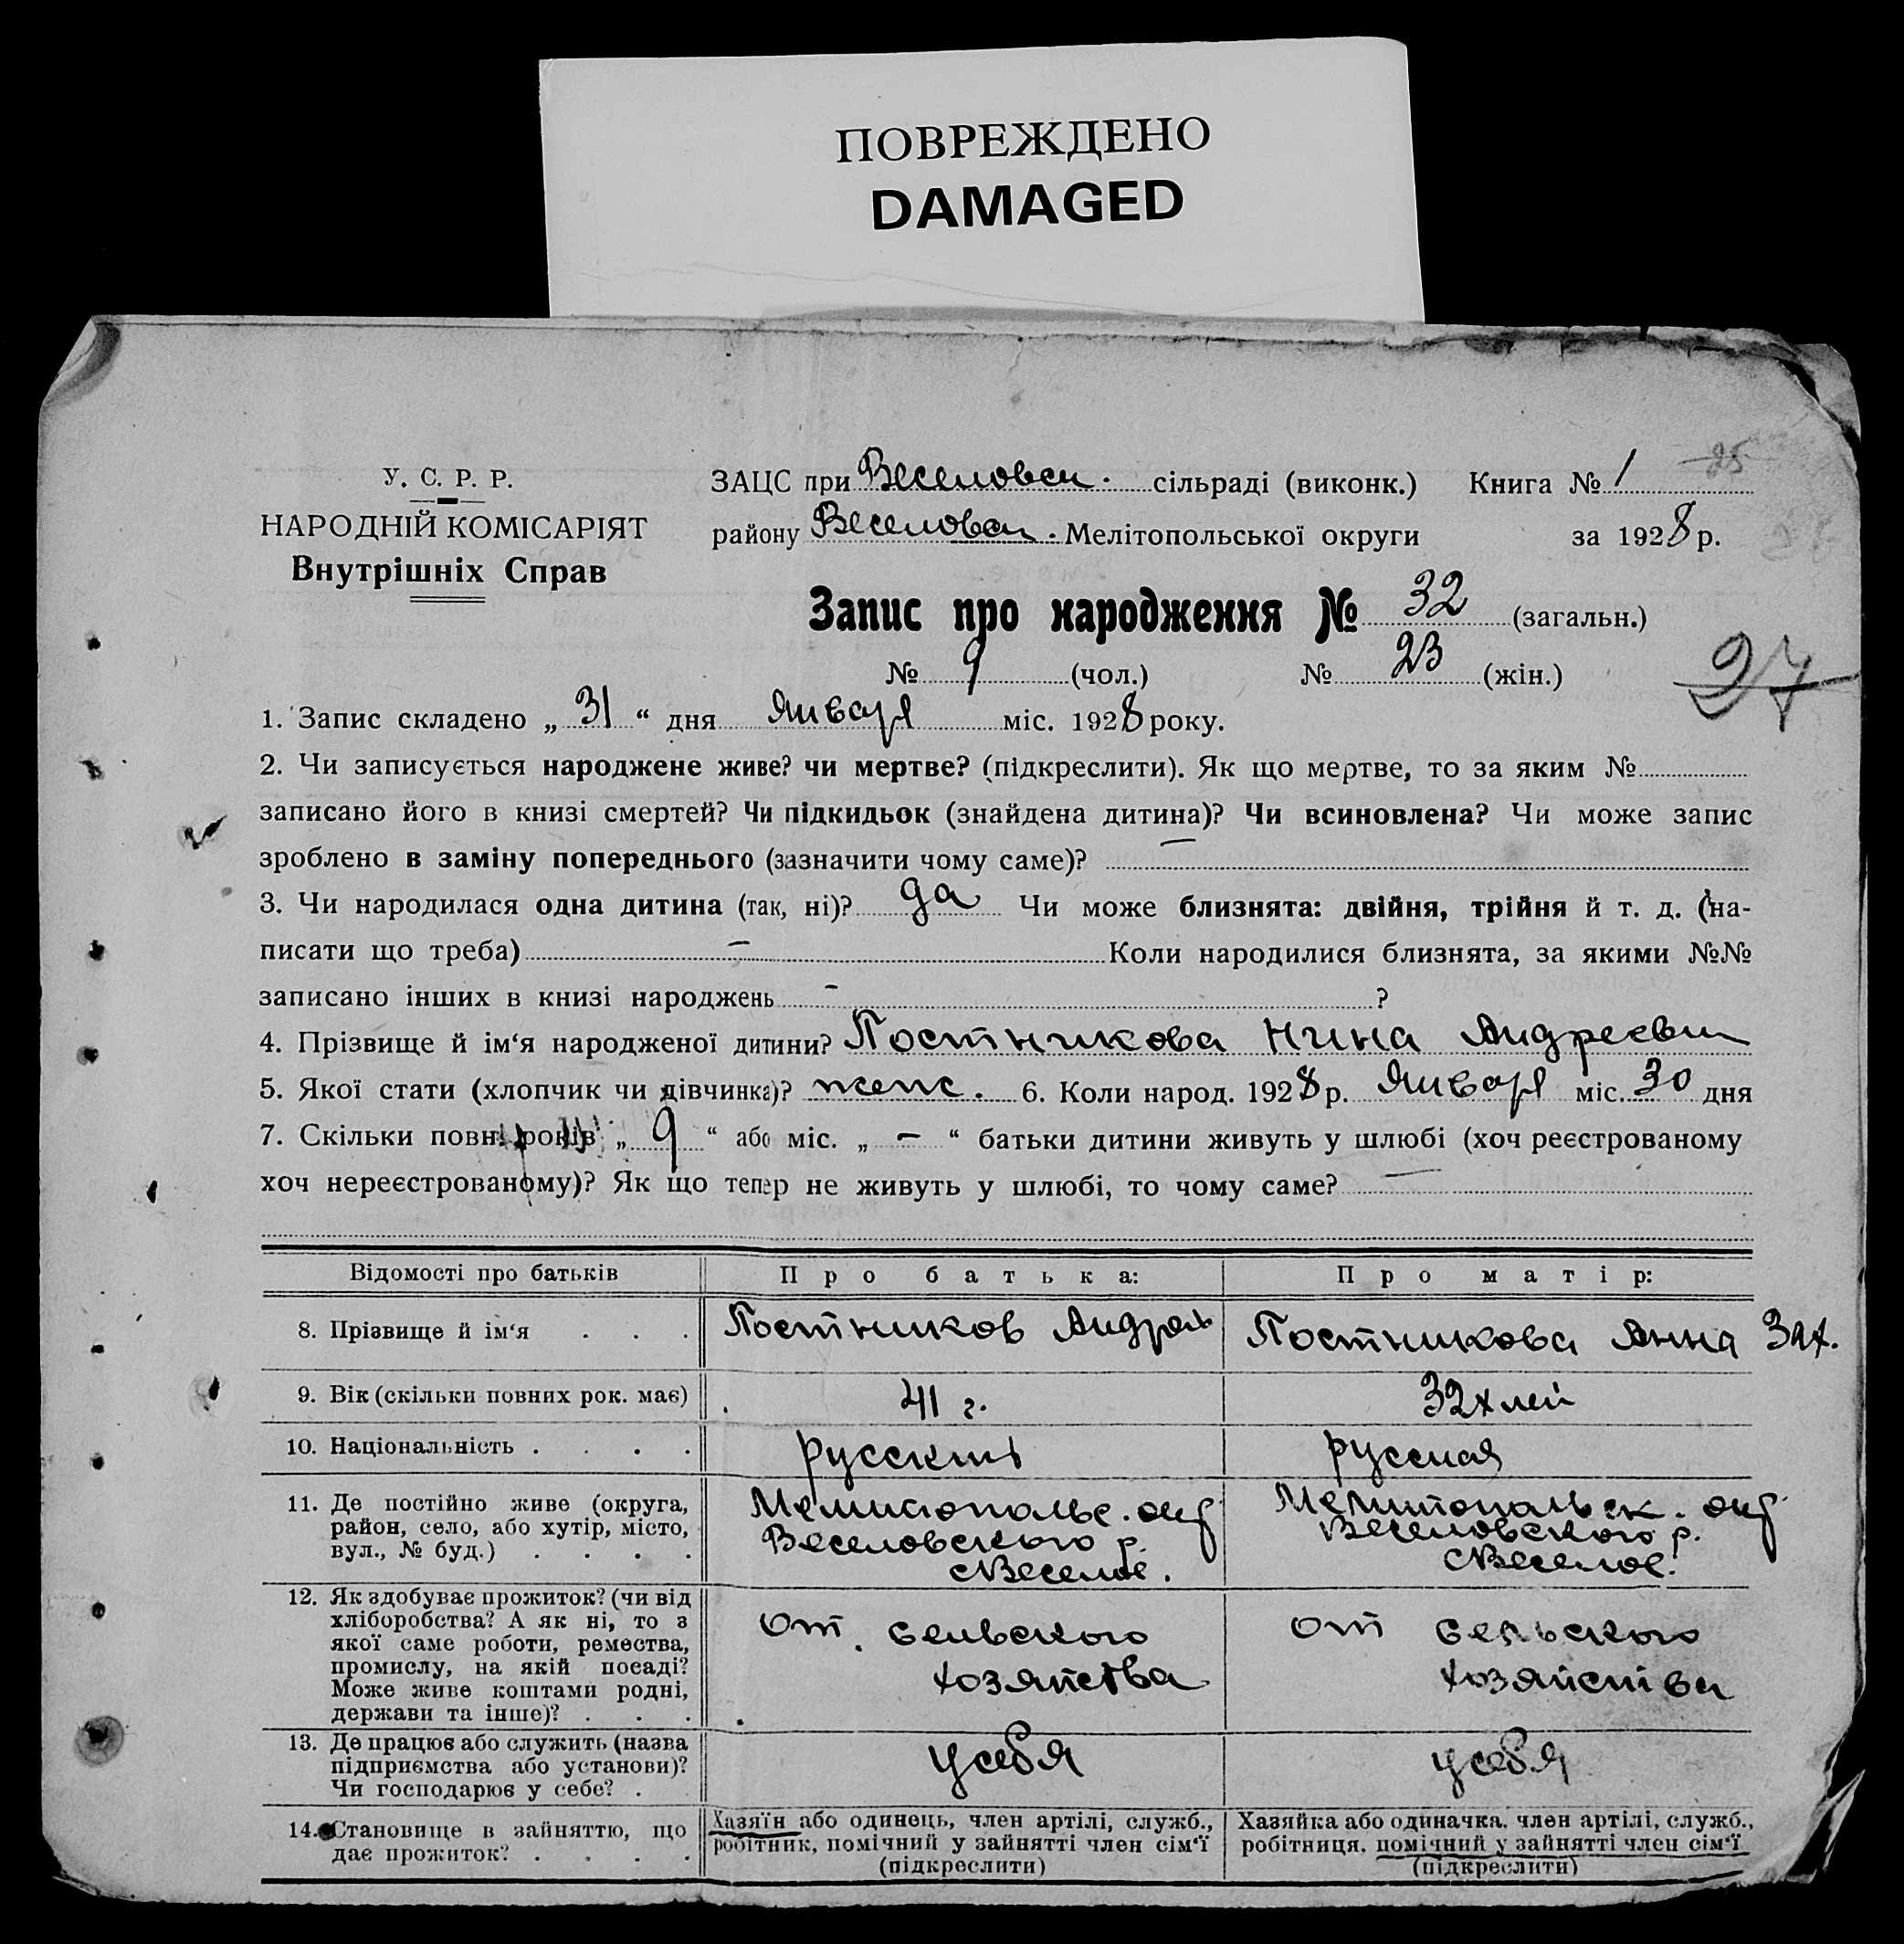 ПОВРЕЖДЕНО
DAMAGED
25
У. С. Р. Р.
НАРОДНІЙ КОМІСАРІЯТ
Внутрішніх Справ
ЗАЦС при Веселовск. сільраді (виконк.) Книга № 1
району Веселовск. Мелітопольської округи за 1928 р.
Запис про народження № 32 (загальн.)
№ 9 (чол.) № 23 (жін.)
27
1. Запис складено „ 31 “ дня Января міс. 1928 року.
2. Чи записується народжене живе? чи мертве? (підкреслити). Як що мертве, то за яким №
записано його в книзі смертей? Чи підкидьок (знайдена дитина)? Чи всиновлена? Чи може запис
зроблено в заміну попереднього (зазначити чому саме)? —
3. Чи народилася одна дитина (так, ні)? да Чи може близнята: двійня, трійня й т. д. (на-
писати що треба) — Коли народилися близнята, за якими №№
записано інших в книзі народжень — ?
4. Прізвище й ім‘я народженої дитини? Постникова Нина Андреевн
5. Якої стати (хлопчик чи дівчинка)? женс. 6. Коли народ. 1928 р. Января міс. 30 дня
7. Скільки повн. років „ 9 “ або міс. „ — “ батьки дитини живуть у шлюбі (хоч реєстрованому
хоч нереєстрованому)? Як що тепер не живуть у шлюбі, то чому саме? —
Відомості про батьків Про батька: Про матір:
8. Прізвище й ім‘я . . . Постников Андрей Постникова Анна Зах.
9. Вік (скільки повних рок. має) 41 г. 32х лет
10. Національність . . . . русский русская
11. Де постійно живе (округа, район, село, або хутір, місто, вул., № буд.) . . . .
Мелитопольс. окр
Веселовского р.
с Веселое.
Мелитопольск. окр
Веселовского р.
с Веселое.
12. Як здобуває прожиток? (чи від хліборобства? А як ні, то з якої саме роботи, ремества, промислу, на якій посаді? Може живе коштами родні, держави та інше)? . . .
от сельского
хозяйства
от сельского
хозяйства
13. Де працює або служить (назва підприємства або установи)? Чи господарює у себе? .
у себя
у себя
14. Становище в зайняттю, що дає прожиток? . . . .
Хазяїн або одинець, член артілі, служб.,
робітник, помічний у зайнятті член сім‘ї
(підкреслити)
Хазяйка або одиначка, член артілі, служб.,
робітниця, помічний у зайнятті член сім‘ї
(підкреслити)